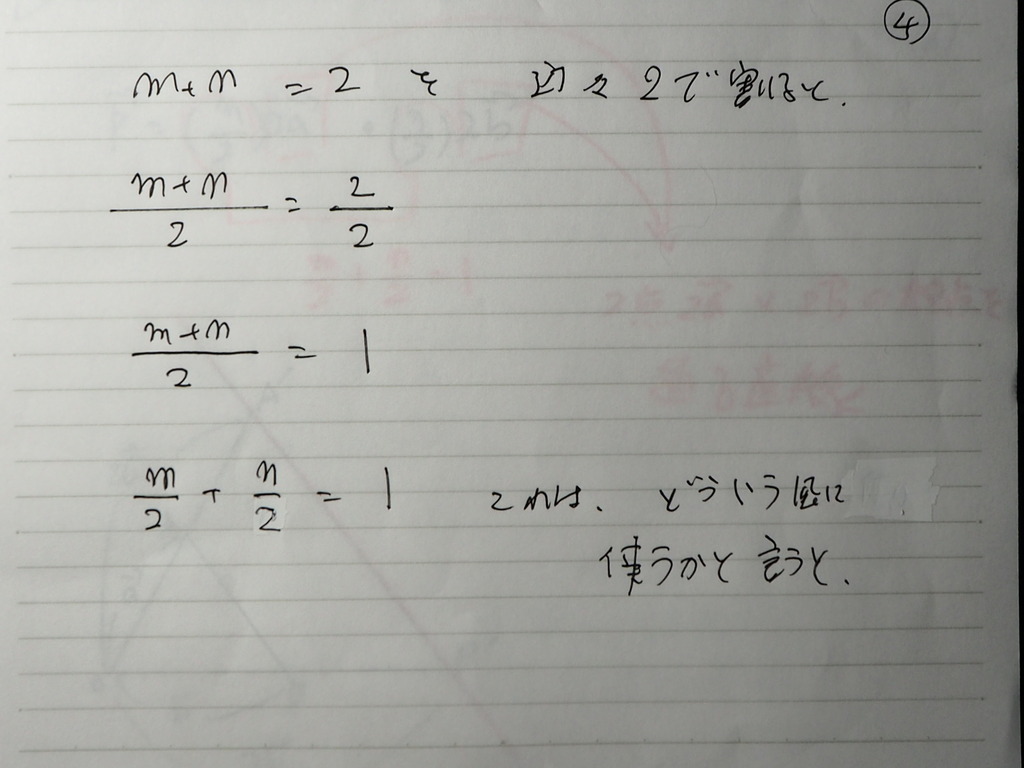 ④
m+n = 2 を 辺々 2で割ると、
m+n/2 = 2/2
m+n/2 = 1
m/2 + n/2 = 1 これは、どういう風に
使うかと言うと、